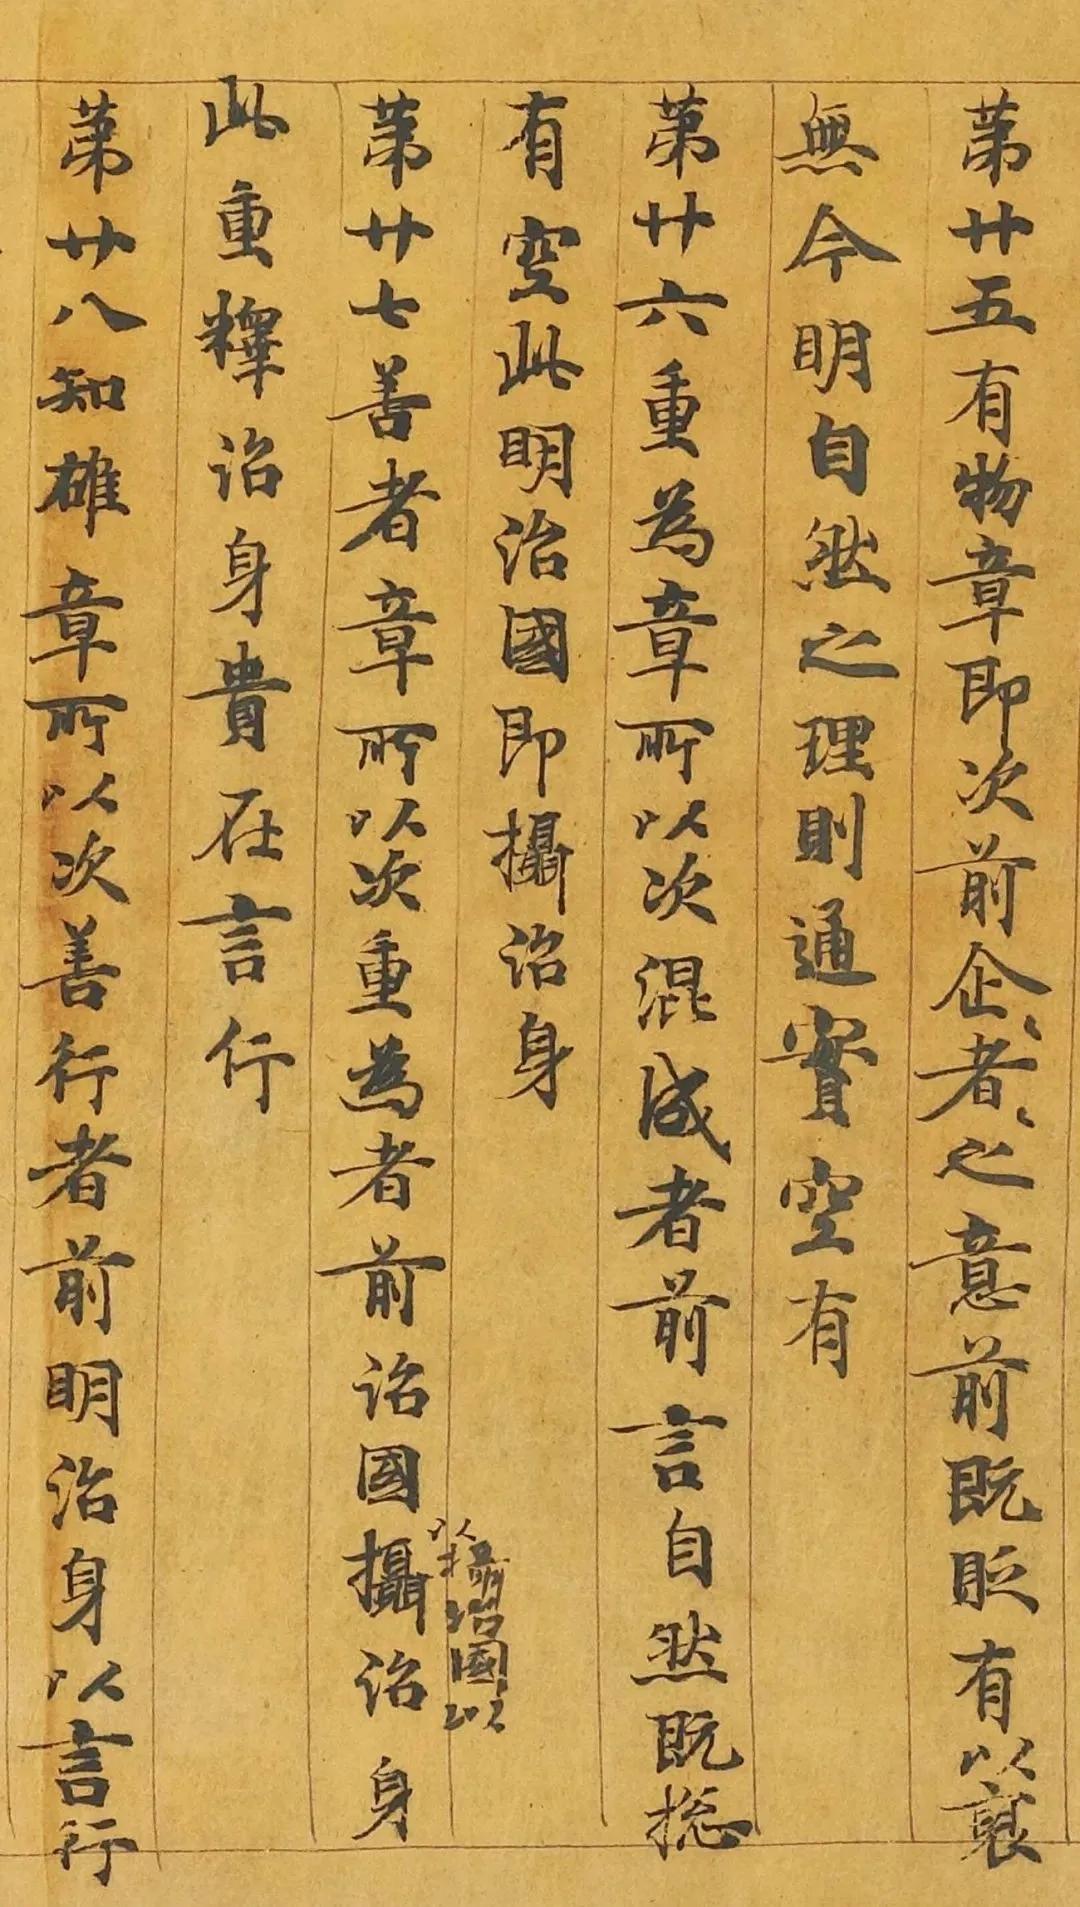 苐廿五有物章即次前企者之意前既貶有以襃
無今明自然之理則通實空有
苐廿六重為章所以次混成者前言自然既揔
有空此明治國即攝治身
以攝治國以
苐廿七善者章所以次重為者前治國攝治身
此重釋治身貴在言行
苐廿八知雄章所以次善行者前明治身以言行